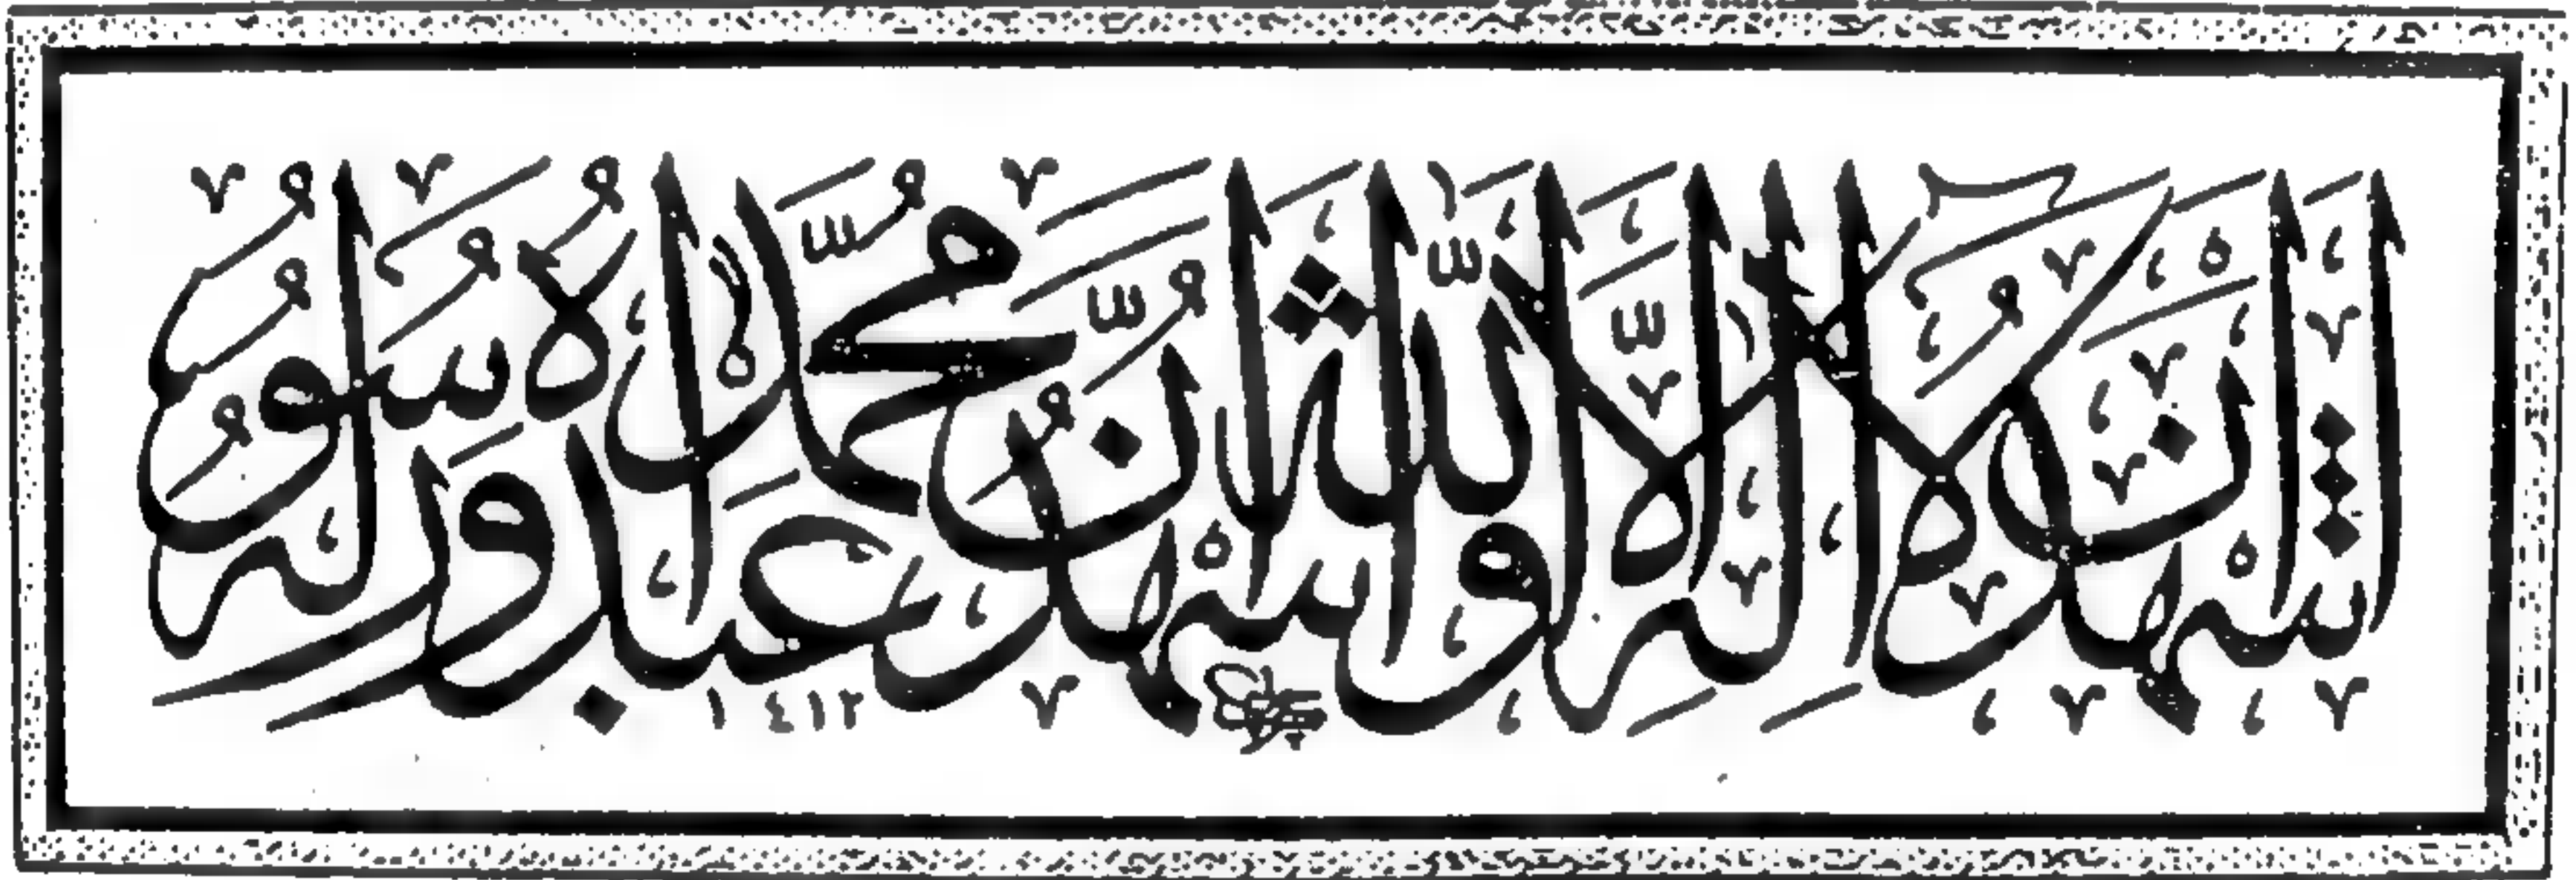 أَشْهَدُ أَنْ لَا إِلَٰهَ إِلَّا اللّٰهُ وَأَشْهَدُ أَنَّ مُحَمَّدًا عَبْدُهُ وَرَسُولُهُ
١٤١٢